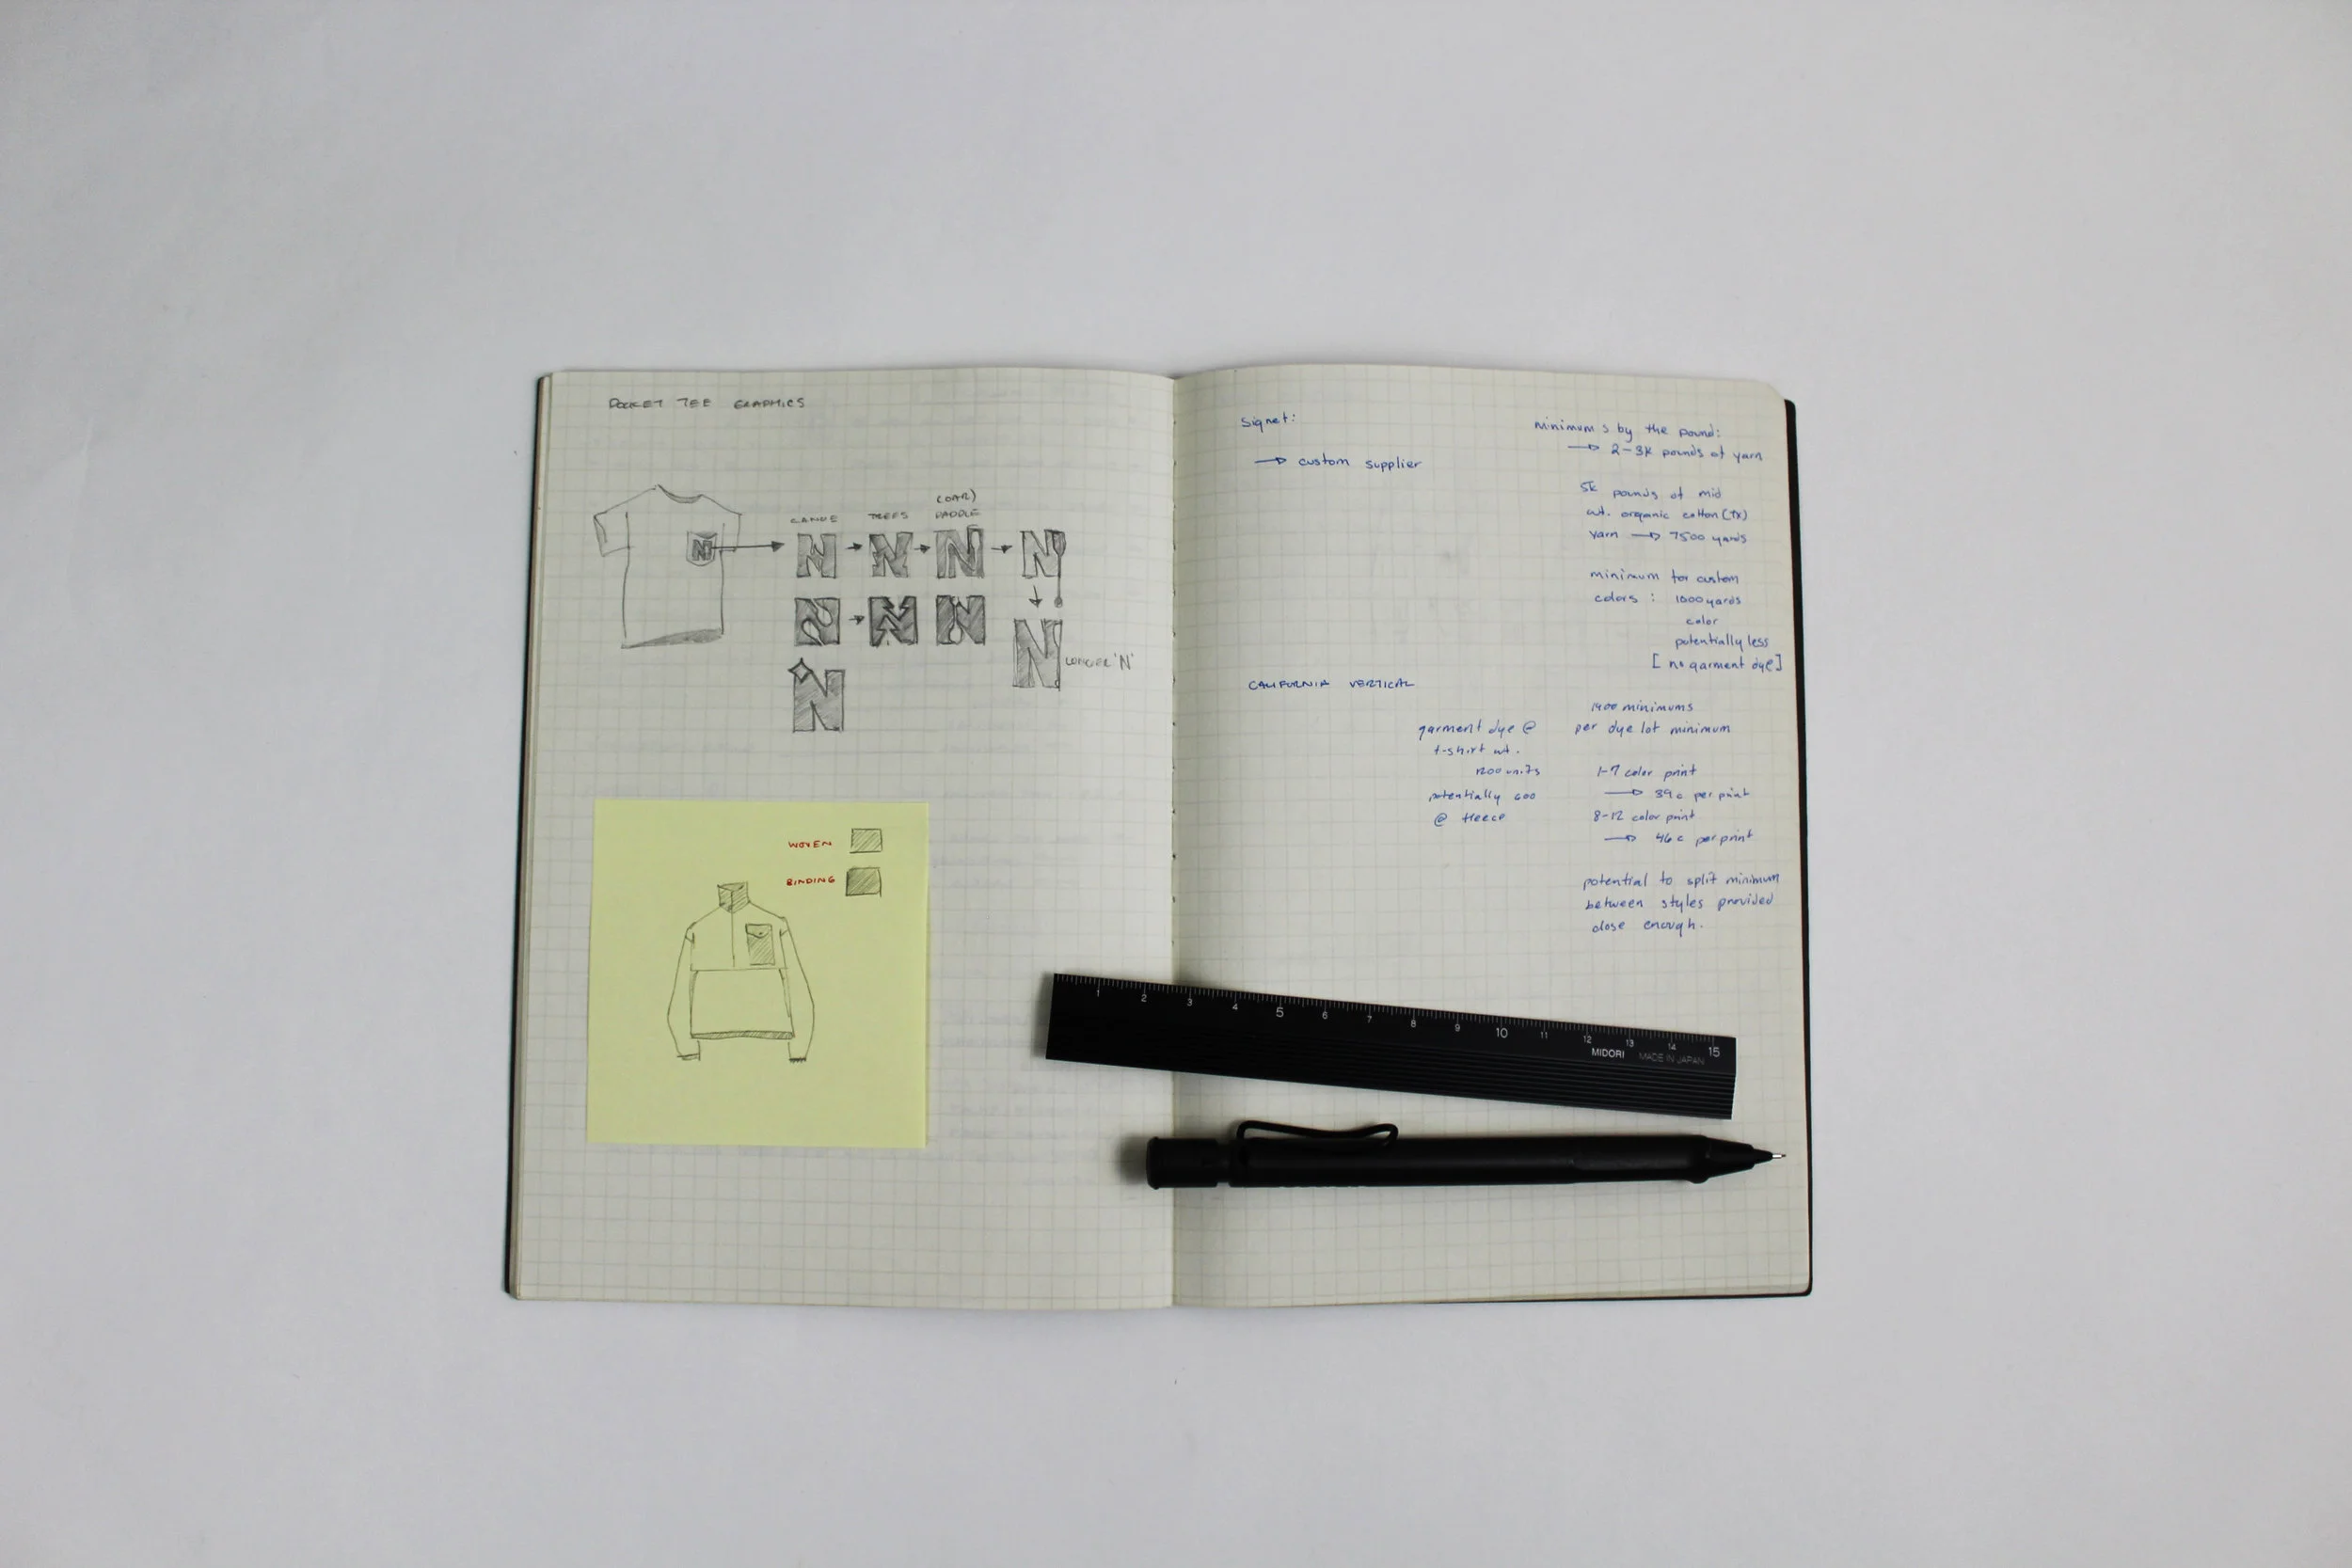 POCKET TEE GRAPHICS
CANOE
TREES
(OAR)
PADDLE
N
LONGER 'N'
WOVEN
BINDING
Signet:
→ custom supplier
minimums by the pound:
→ 2-3k pounds of yarn
5k pounds of mid
wt. organic cotton (tx)
yarn → 7500 yards
minimum for custom
colors : 1000 yards
color
potentially less
[no garment dye]
CALIFORNIA VERTICAL
garment dye @
t-shirt wt.
1200 units
potentially 600
@ fleece
1400 minimums
per dye lot minimum
1-7 color print
→ 39c per print
8-12 color print
→ 46c per print
potential to split minimum
between styles provided
close enough.
1 2 3 4 5 6 7 8 9 10 11 12 13 14 15
MIDORI MADE IN JAPAN